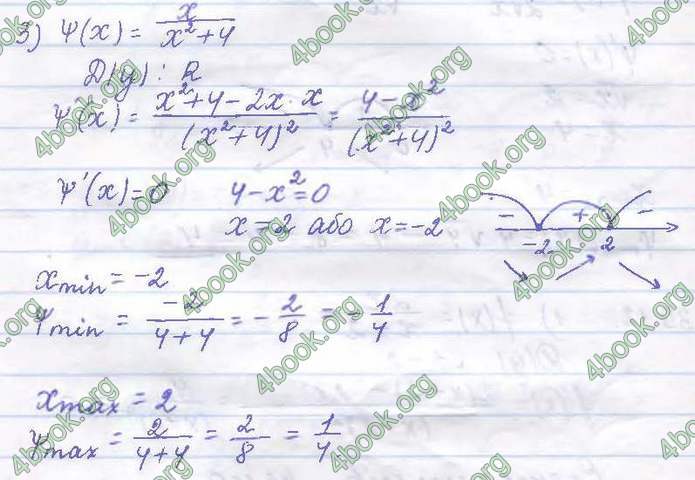 3) Ψ(x) = x/(x²+4)
D(y): R
Ψ'(x) = (x²+4-2x·x)/(x²+4)² = (4-x²)/(x²+4)²
Ψ'(x)=0 4-x²=0
x=2 або x=-2
- + -
-2 2
x min = -2
Ψ min = -2/(4+4) = -2/8 = -1/4
x max = 2
Ψ max = 2/(4+4) = 2/8 = 1/4
4book.org